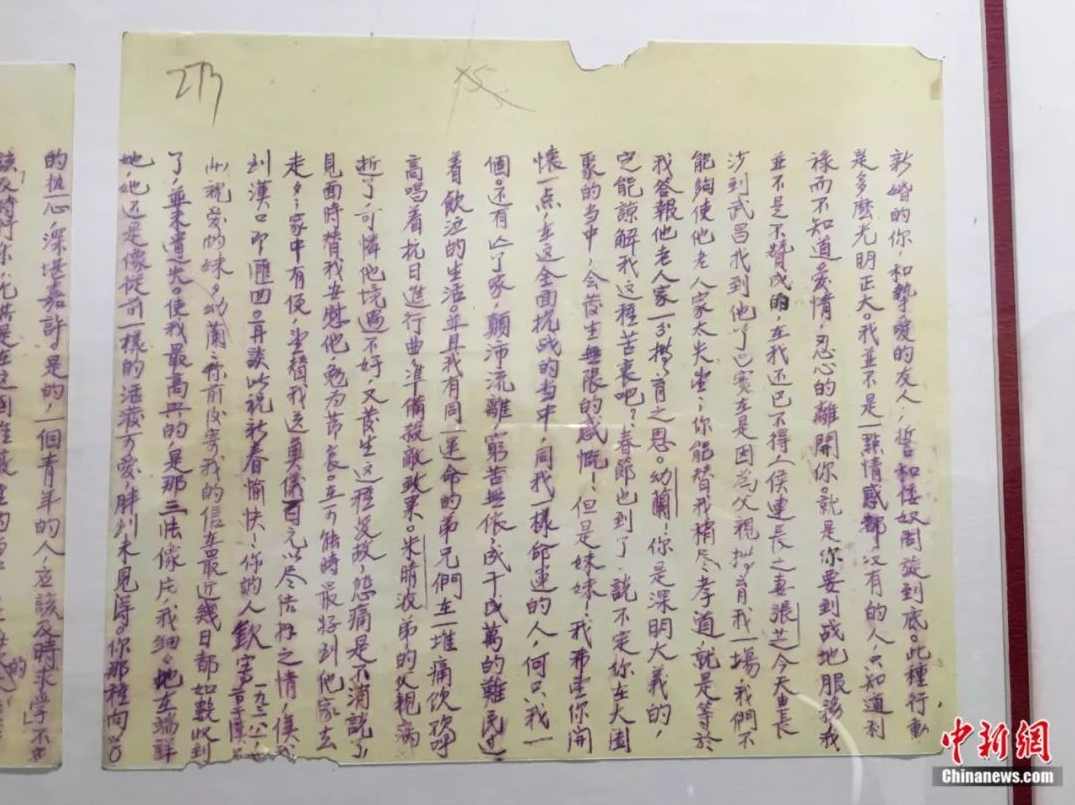 新婚的你,和摯愛的友人,誓和倭奴周旋到底。此種行動
是多麽光明正大。我並不是一點情感都沒有的人,只知道利
祿而不知道愛情,忍心的離開你。就是你要到战地服務我
並不是不贊成的,在我还巴不得(侯連長之妻張芝今天由長
沙到武昌找到他了)实在是因為父親撫育我一場,我們不
能夠使他老人家太失望;你能替我稍尽孝道就是等於
我答報他老人家一分撫育之恩。幼蘭!你是深明大義的,
定能諒解我这種苦衷吧?春節也到了,說不定你在大團
聚的当中,会发生無限的感慨!但是妹妹!我希望你開
懷一点,在这全面抗战的当中,同我一樣命運的人,何只我一
個。还有
家,顛沛流離,窮苦無依,成千成萬的難民过
着飲泣的生活。并且我有同一運命的弟兄們在一堆痛飲欢呼
高唱着抗日進行曲準備殺敵致果。朱晴波弟的父親病
逝了,可憐他境遇不好,又发生这種变故,悲痛是不消說了
見面時替我安慰他勉为节哀。在可能時最好到他家去
走走,家中有便,望替我送奠儀百元以尽
之情,俟
到漢口即匯回。再談此祝新春愉快!你的人欽寄
一九三八
親愛的妹妹幼蘭:你前後寄我的信在最近幾日都如數收到
了,並未遺失。使我最高興的,是那三張像片,我細細地在端詳
她,她还是像從前一樣的活潑可愛,胖到未見得。你那種向
的恆心,深堪嘉許是的,一個青年的人,应該及時求学,不
中新網
Chinanews.com